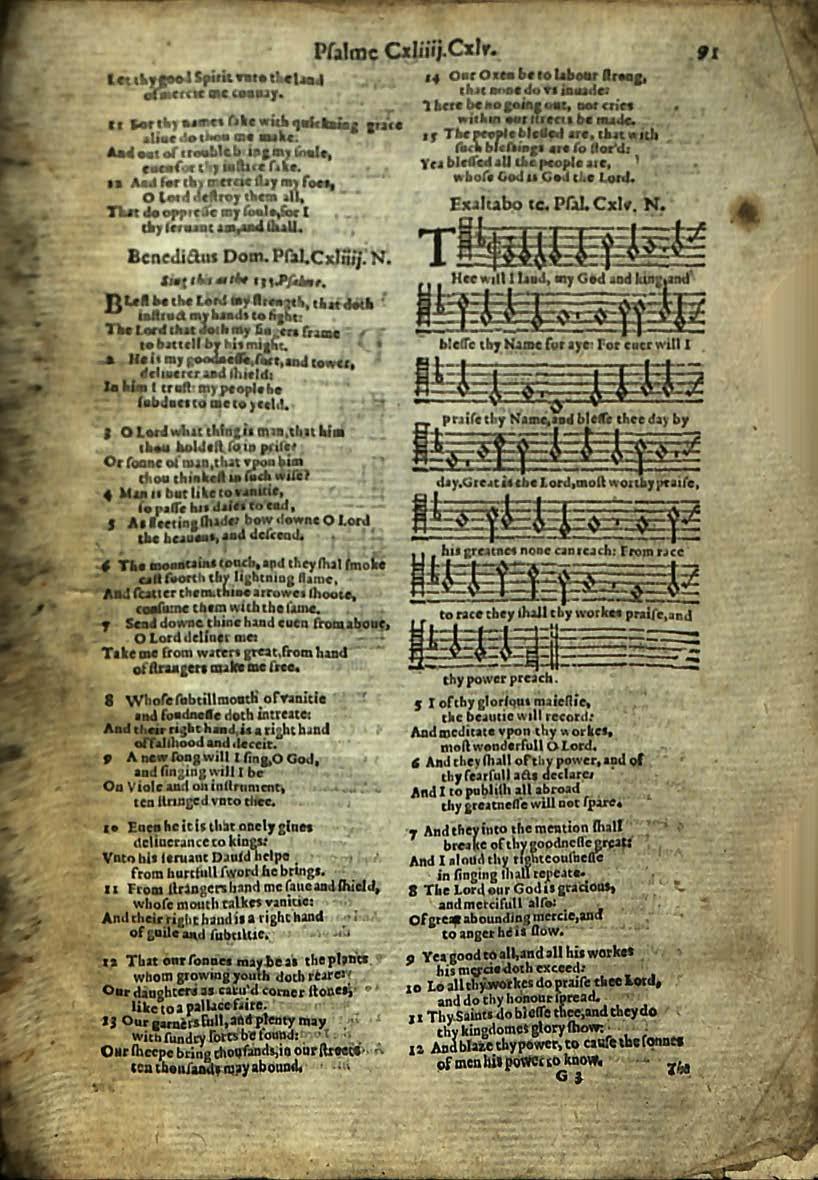 Psalme Cxliiij.Cxlv. 91
Let thy good Spirit vnto the land
of mercie me conuay.
11 For thy names sake with quickning grace
aliue do thou me make:
And out of trouble bring my soule,
euen for thy iustice sake.
12 And for thy mercie slay my foes,
O Lord destroy them all,
That do oppresse my soule, for I
thy seruant am, and shall.
Benedictus Dom. Psal.Cxliiij. N.
Sing this as the 133.Psalme.
BLest be the Lord my strength, that doth
instruct my hands to fight:
The Lord that doth my fingers frame
to battell by his might.
2 He is my goodnesse, fort, and tower,
deliuerer and shield:
In him I trust: my people he
subdues to me to yeeld.
3 O Lord what thing is man, that him
thou holdest so in prise?
Or sonne of man, that vpon him
thou thinkest in such wise?
4 Man is but like to vanitie,
so passe his daies to end,
5 As fleeting shade: bow downe O Lord
the heauens, and descend.
6 The mountains touch, and they shal smoke
cast foorth thy lightning flame,
And scatter them: thine arrowes shoote,
consume them with the same.
7 Send downe thine hand euen from aboue,
O Lord deliuer me:
Take me from waters great, from hand
of strangers make me free.
8 Whose subtill mouth of vanitie
and fondnesse doth intreate:
And their right hand, is a right hand
of falshood and deceit.
9 A new song will I sing, O God,
and singing will I be
On Viole and on instrument,
ten stringed vnto thee.
10 Euen he it is that onely giues
deliuerance to kings:
Vnto his seruant Dauid helpe
from hurtfull sword he brings.
11 From strangers hand me saue and shield,
whose mouth talkes vanitie:
And their right hand is a right hand
of guile and subtiltie.
12 That our sonnes may be as the plants
whom growing youth doth reare:
Our daughters as caru'd corner stones,
like to a pallace faire.
13 Our garners full, and plenty may
with sundry sorts be found:
Our sheepe bring thousands, in our streets
ten thousands may abound.
14 Our Oxen be to labour strong,
that none do vs inuade:
There be no going out, nor cries
within our streets be made.
15 The people blessed are, that with
such blessings are so stor'd:
Yea blessed all the people are,
whose God is God the Lord.
Exaltabo te. Psal. Cxlv. N.
THee will I laud, my God and king, and
blesse thy Name for aye: For euer will I
praise thy Name, and blesse thee day by
day. Great is the Lord, most worthy praise,
his greatnes none can reach: From race
to race they shall thy workes praise, and
thy power preach.
5 I of thy glorious maiestie,
the beautie will record:
And meditate vpon thy workes,
most wonderfull O Lord.
6 And they shall of thy power, and of
thy fearfull acts declare:
And I to publish all abroad
thy greatnesse will not spare.
7 And they into the mention shall
breake of thy goodnesse great:
And I aloud thy righteousnesse
in singing shall repeate.
8 The Lord our God is gracious,
and mercifull also:
Of great abounding mercie, and
to anger he is slow.
9 Yea good to all, and all his workes
his mercie doth exceed:
10 Lo all thy workes do praise thee Lord,
and do thy honour spread.
11 Thy Saints do blesse thee, and they do
thy kingdomes glory show:
12 And blaze thy power, to cause the sonnes
of men his power to know.
G 3 The